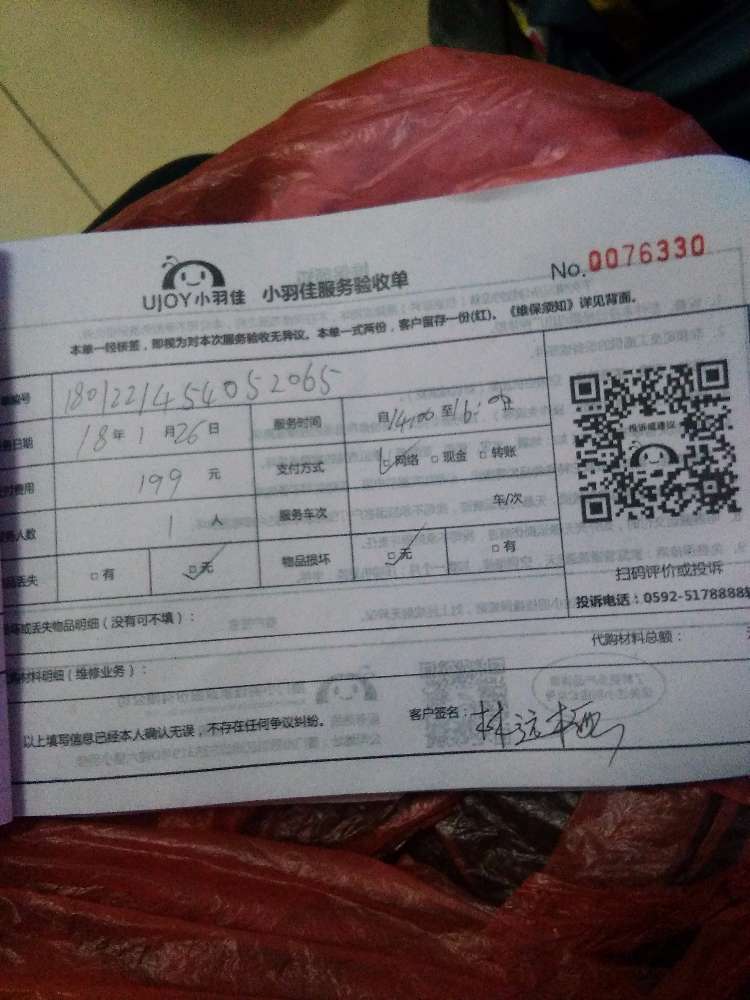 No.0076330
UJOY小羽佳 小羽佳服务验收单
本单一经核签，即视为对本次服务验收无异议。本单一式两份，客户留存一份(红)。《维保须知》详见背面。
编号 1801221454052065
日期 18年1月26日 服务时间 自14:00至16:00止
费用 199元 支付方式 ☑网络 □现金 □转账
人数 1人 服务车次 车/次
丢失 □有 ☑无 物品损坏 ☑无 □有
投诉或建议
扫码评价或投诉
投诉电话：0592-5178888
或丢失物品明细（没有可不填）：
代购材料总额：
材料明细（维修业务）：
以上填写信息已经本人确认无误，不存在任何争议纠纷。 客户签名：